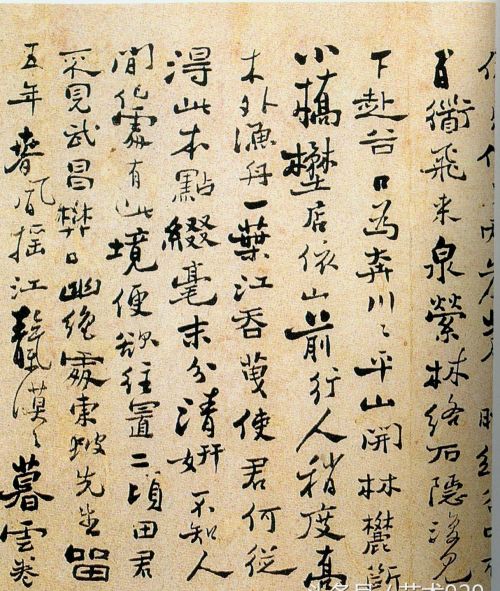 百衜飛来泉縈林絡石隱復見
下赴谷口為奔川〻平山開林麓斷
小橋壄店依山前行人稍度喬
木外漁舟一葉江吞天使君何從
得此本點綴毫末分清妍不知人
間何處有此境便欲往置二頃田君
不見武昌樊口幽絶處東坡先生留
五年春風摇江靝漠〻暮雲卷